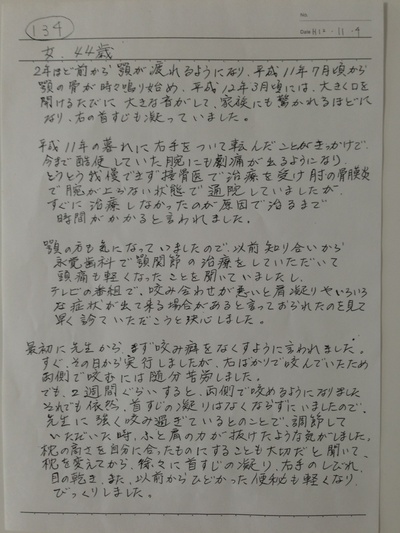 134
No.
Date H12・11・9
女. 44歳
2年ほど前から顎が疲れるようになり、平成11年7月頃から
顎の骨が時々鳴り始め、平成12年3月頃には、大きく口を
開けるたびに大きな音がして、家族にも驚かれるほどに
なり、右の首すじも凝っていました。
平成11年の暮れに右手をついて転んだことがきっかけで、
今まで酷使していた腕にも劇痛が出るようになり、
とうとう我慢できず接骨医で治療を受け肘の骨膜炎
で腕が上らない状態で通院していましたが、
すぐに治療しなかったのが原因で治るまで
時間がかかると言われました。
顎の方も気になっていましたので、以前知り合いから
永覚歯科で顎関節の治療をしていただいて
頭痛も軽くなったことを聞いていましたし、
テレビの番組で、咬み合わせが悪いと肩凝りやいろいろ
な症状が出て来る場合があると言っておられたのを見て
早く診ていただこうと決心しました。
最初に先生から、まず咬み癖をなくすように言われました。
すぐ、その日から実行しましたが、右ばかりで咬んでいたため
両側で咬むには随分苦労しました。
でも、2週間ぐらいすると、両側で咬めるようになりました
それでも依然、首すじの凝りはなくならずにいましたので、
先生に強く咬み過ぎているとのことで、調節して
いただいた時、ふと肩の力が抜けたような気がしました。
枕の高さを自分に合ったものにすることも大切だと聞いて、
枕を変えてから、徐々に首すじの凝り、右手のしびれ、
目の乾き、また、以前からひどかった便秘も軽くなり、
びっくりしました。